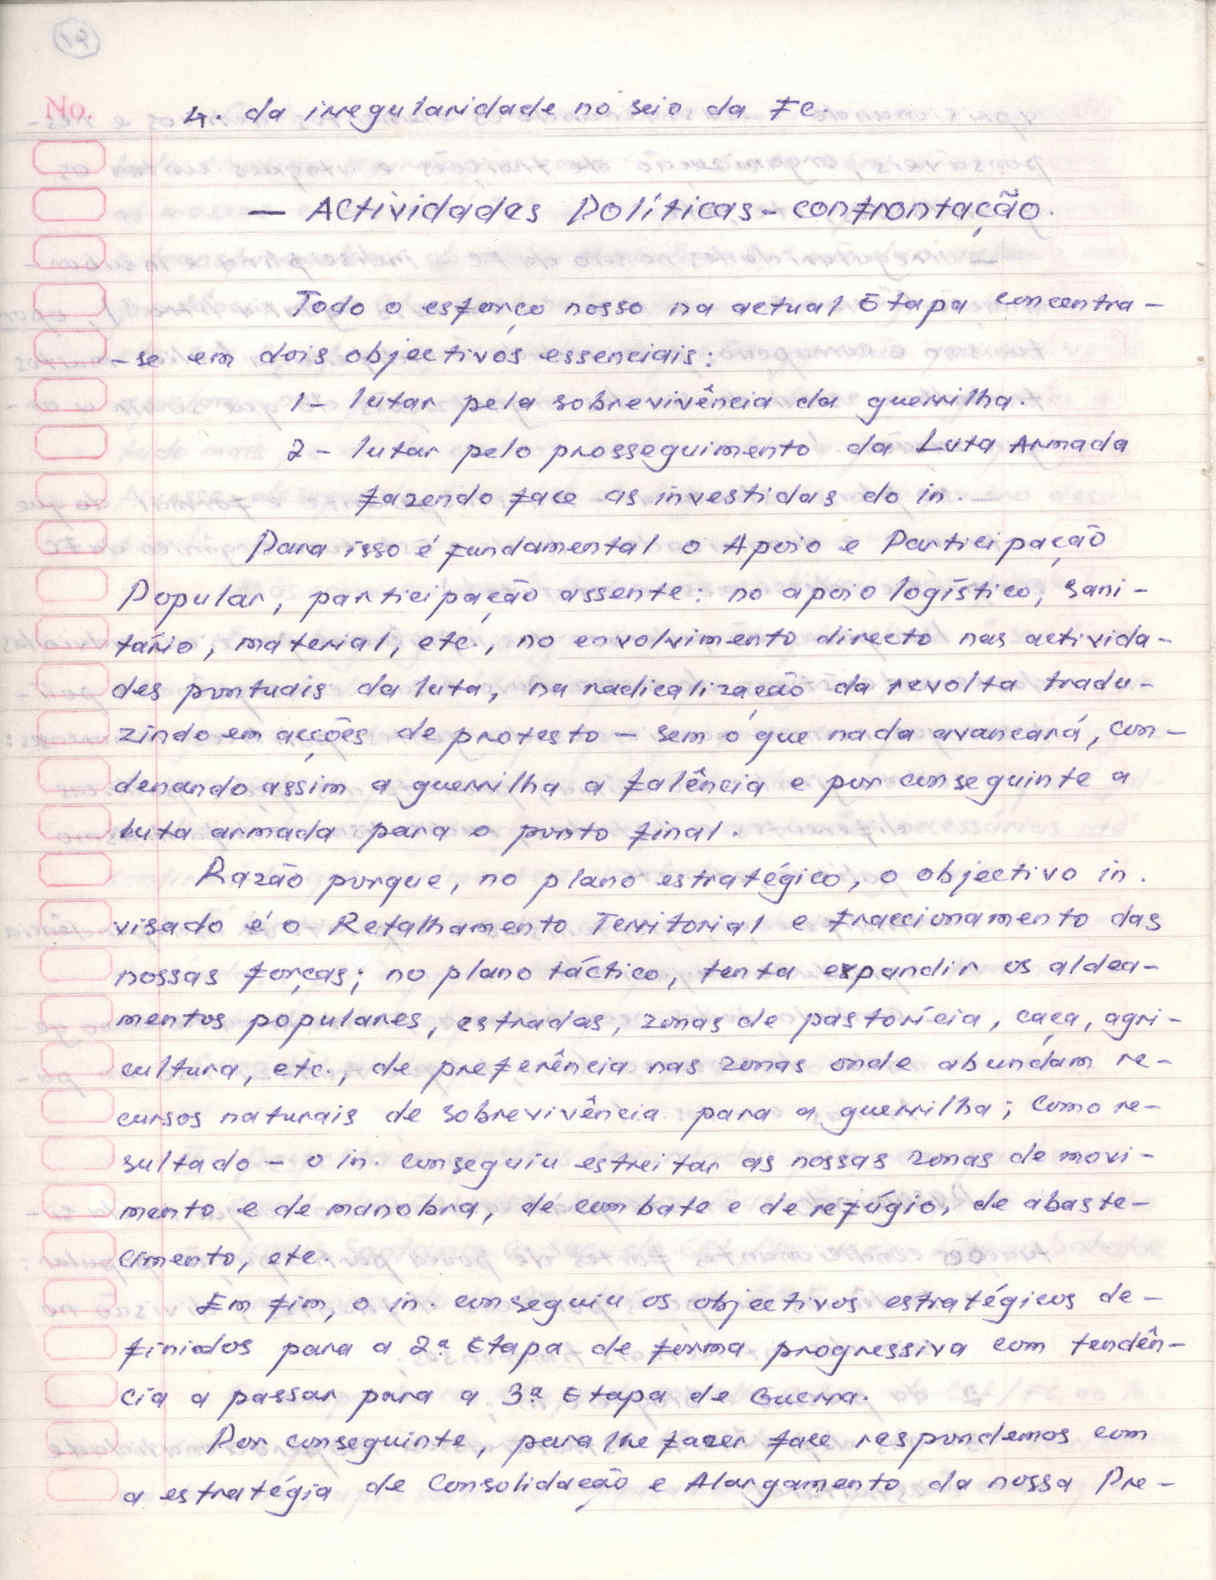 No. 4. da irregularidade no seio da FC.
— Actividades Políticas - confrontação.
Todo o esforço nosso na actual Etapa concentra-
-se em dois objectivos essenciais:
1 - lutar pela sobrevivência da guerrilha.
2 - lutar pelo prosseguimento da Luta Armada
fazendo face as investidas do in.
Para isso é fundamental o Apoio e Participação
Popular, participação assente: no apoio logístico, sani-
tário, material, etc., no envolvimento directo nas activida-
des pontuais da luta, na radicalização da revolta tradu-
zindo em acções de protesto — sem o que nada avançará, con-
denando assim a guerrilha a falência e por conseguinte a
luta armada para o ponto final.
Razão porque, no plano estratégico, o objectivo in.
visado é o Retalhamento Territorial e fraccionamento das
nossas forças; no plano táctico, tenta expandir os aldea-
mentos populares, estradas, zonas de pastorícia, caça, agri-
cultura, etc., de preferência nas zonas onde abundam re-
cursos naturais de sobrevivência para a guerrilha; como re-
sultado - o in. conseguiu estreitar as nossas zonas de movi-
mento e de manobra, de combate e de refúgio, de abaste-
cimento, etc.
Em fim, o in. conseguiu os objectivos estratégicos de-
finidos para a 2ª Etapa de forma progressiva com tendên-
cia a passar para a 3ª Etapa de Guerra.
Por conseguinte, para lhe fazer face respondemos com
a estratégia de Consolidação e Alargamento da nossa Pre-